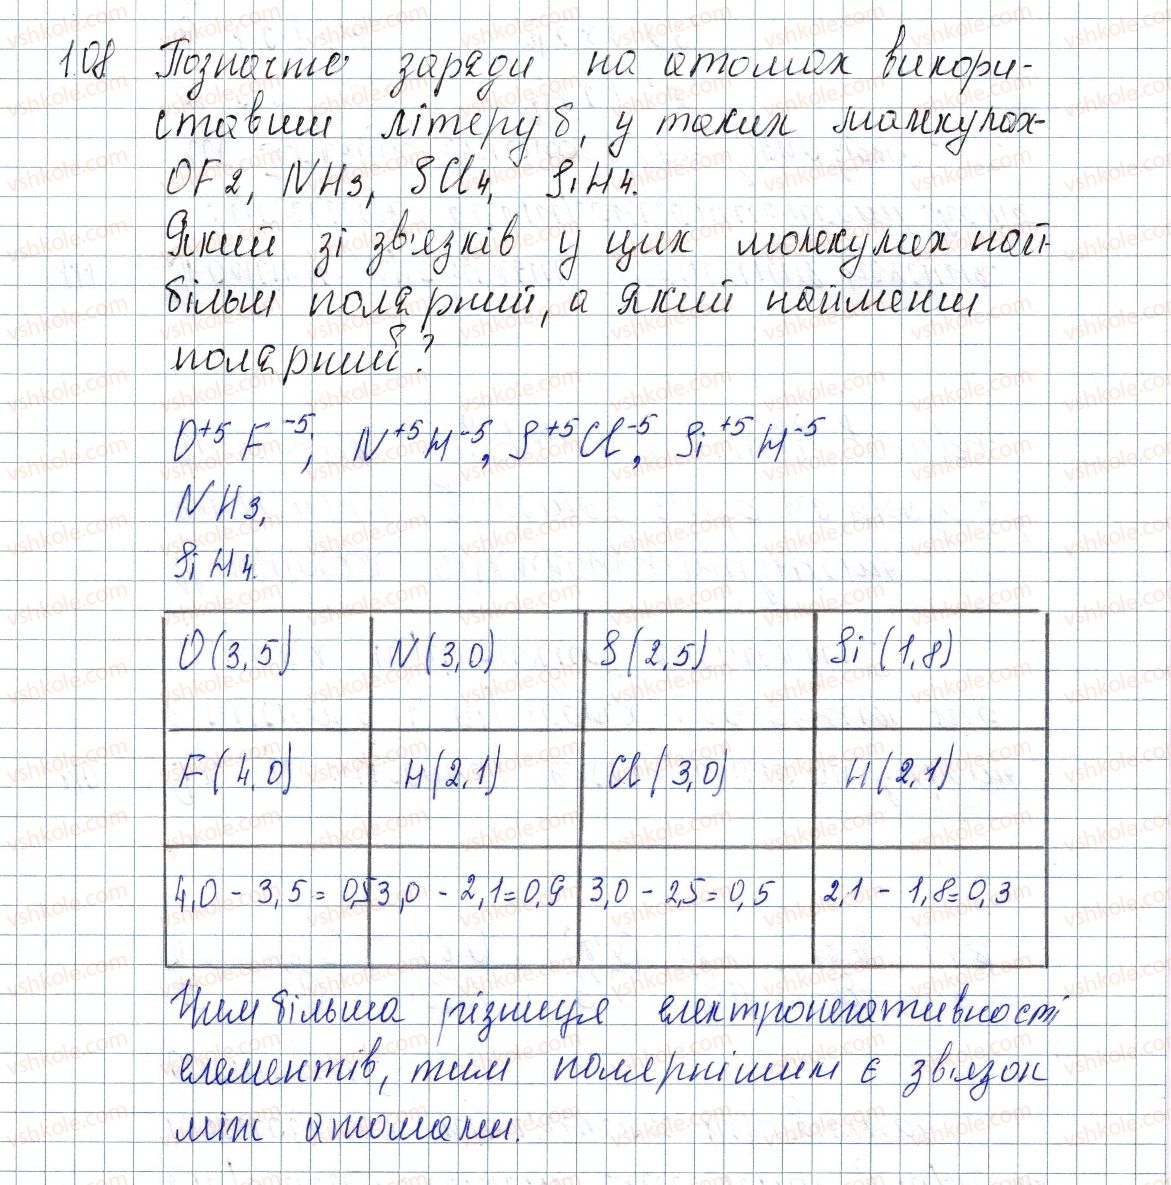 108 Позначте заряди на атомах викори-
ставши літеру б, у таких молекулах-
OF2, NH3, SCl4, SiH4.
Який зі зв'язків у цих молекулах най-
більш полярний, а який найменш
полярний?
O+б F-б; N+б H-б, S+б Cl-б, Si+б H-б
NH3,
SiH4.
O(3,5) N(3,0) S(2,5) Si(1,8)
F(4,0) H(2,1) Cl(3,0) H(2,1)
4,0 - 3,5 = 0,5 3,0 - 2,1=0,9 3,0 - 2,5=0,5 2,1 - 1,8=0,3
Чим більша різниця електронегативності
елементів, тим полярнішим є зв'язок
між атомами.